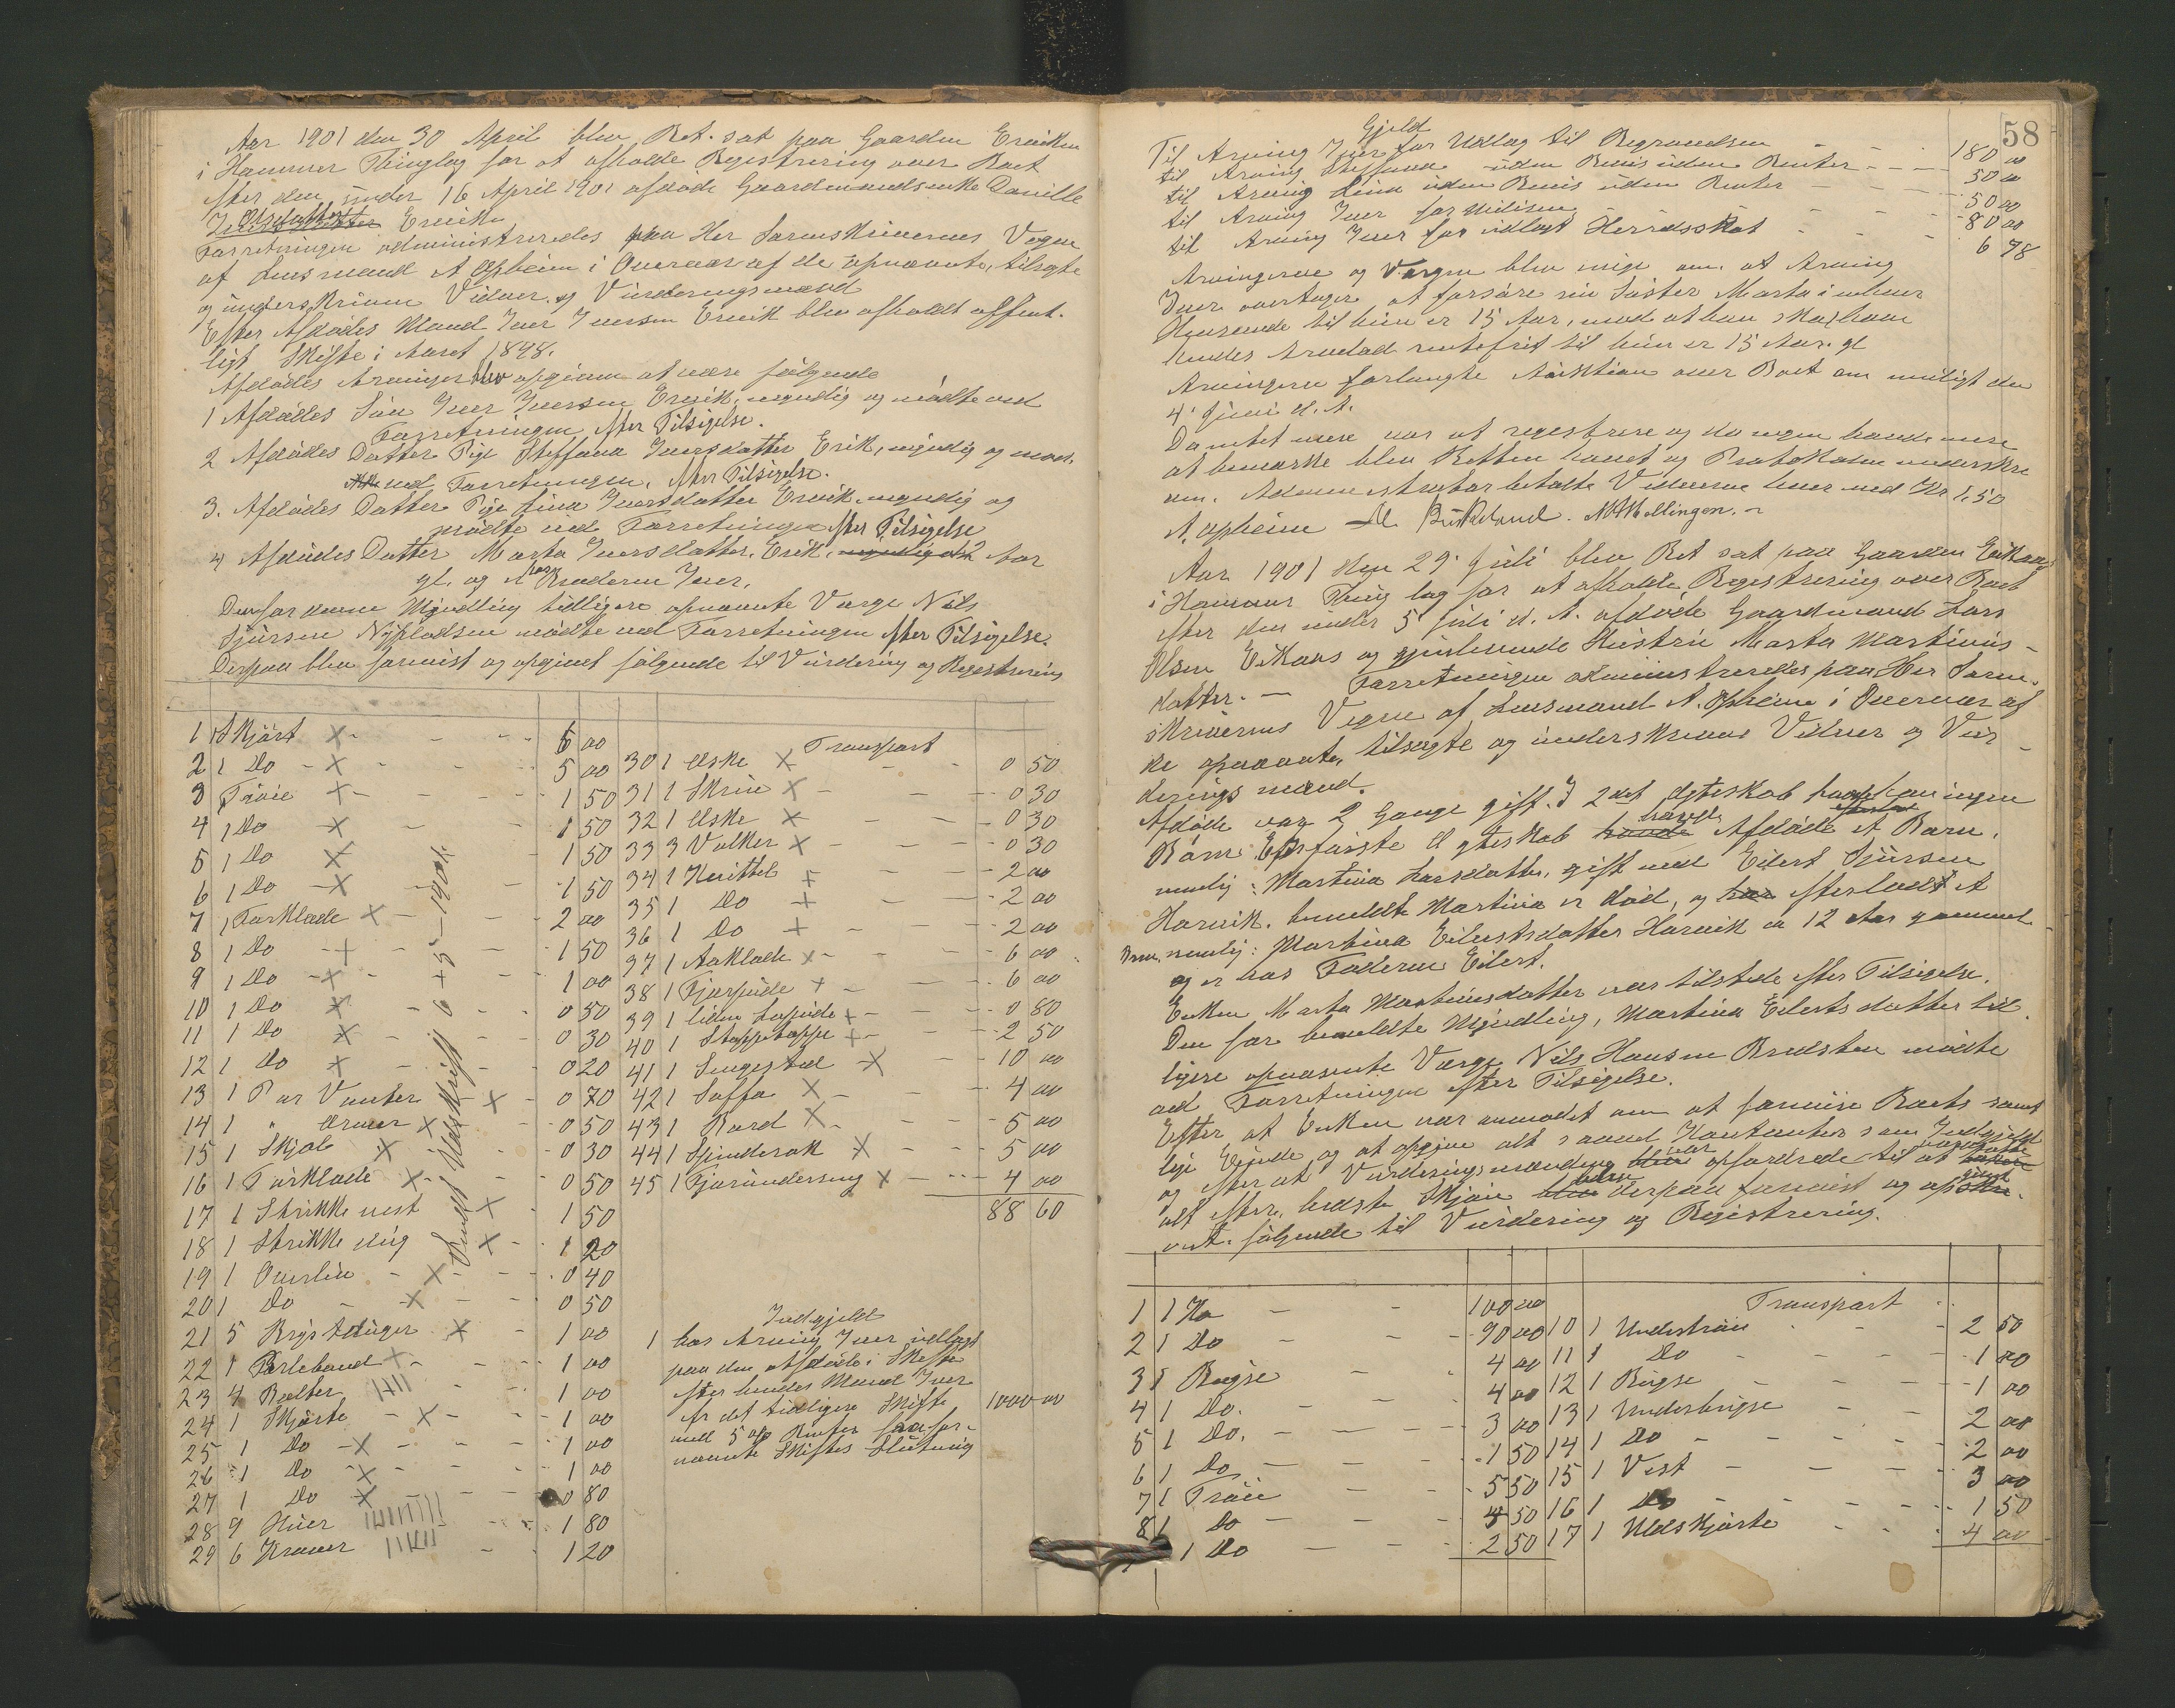 Aar 1901 den 30 April blev Ret sat paa Gaarden Ervikm
i Hammer Thinglag for at afholde Registrering over Boet
efter den under 16 April 1901 afdöde Gaardmandsenke Danille
Olsdatter Ervik
Forretningen administreredes paa Her Sorenskriverens Vegne
af Lensmand A Opheim i Overvær af de opnævnte, tilsagte
og underskrivne Vidner og Vurderingsmænd
Efter Afdödes Mand Iver Iversen Ervik blev afholdt offent-
ligt Skifte i Aaret 1898.
Afdödes Arvinger blev opgivne at være fölgende
1 Afdödes Sön Iver Iversen Ervik, myndig og mödte ved
Forretningen efter Tilsigelse.
2 Afdödes Datter Pige Steffana Iversdatter Erik, myndig og möd.
ved Forretningen, efter Tilsigelse.
3. Afdödes Datter Pige Lina Iversdatter Ervik myndig og
mödte ved Forretningen efter Tilsigelse
4 Afdödes Datter Marta Iversdatter Erik, 12 Aar
gl. og er hos Broderen Iver.
Den for denne Myndling tidligere opnævnte Værge Nils
Sjursen Nypladsen mödte ved Forretningen efter Tilsigelse.
Derpaa blev foranvist og opgivet fölgende til Vurdering og Registrering
1 1 Skjört X - - - 6 00
2 1 Do - X - - - 5 00
3 1 Tröie X - - - 1 50
4 1 Do X - - 1 50
5 1 Do X - 1 50
6 1 Do - X - 1 50
7 1 Forklæde X - - - 2 00
8 1 Do - X - - 1 50
9 1 Do - X - - 1 00
10 1 Do X - - 0 50
11 1 Do X - - 0 30
12 1 Do X - - 0 20
13 1 Par Vanter X - 0 70
14 1 " Ærmer X - - 0 50
15 1 Skjol X - - 0 30
16 1 Törklæde X - - 0 50
17 1 Strikke vest X - 1 50
18 1 Strikke dug X - - 1 20
19 1 Overliv - X - - 0 40
20 1 Do - X - - 0 50
21 5 Brystduger X - 1 00
22 1 Perlebaand X - - 1 00
23 4 Belter - - 1 00
24 1 Skjörte - X - - 1 00
25 1 Do - X - - - 1 00
26 1 Do - X - - - 1 00
27 1 Do X - - 0 80
28 9 Huer - - 1 80
29 6 Kraver - - 1 20
Sendt Udskrift 6 + 5 - 1901.
Transport
30 1 Æske X - - 0 50
31 1 Skrin X - - - 0 30
32 1 Æske X - - 0 30
33 3 Valker X - - - 0 30
34 1 Kvittel X - - 2 00
35 1 Do X - - 2 00
36 1 Do X - - 2 00
37 1 Aaklæde X - - 6 00
38 1 Fjærpude X - - - 6 00
39 1 liden Lopude X - - 0 80
40 1 Stoppetæppe X - - 2 50
41 1 Sengested X - 10 00
42 1 Soffa X - - - 4 00
43 1 Bord X - - - 5 00
44 1 Spinderok X - - 5 00
45 1 Fjærunderseng X - - 4 00
88 60
Indgjeld
1 hos Arving Iver udlagt
paa den afdöde i Skifte
efter hendes Mand Iver
fr det tidligere Skifte 1000 00
med 5 % Renter fra for-
nævnte Skiftes Slutning
58
Gjeld
Til Arving Iver for Udlæg til Begravelsen - - 180 00
til Arving Steffana uden Bevis uden Renter - - - 50 00
til Arving Lina uden Bevis uden Renter - - - 50 00
til Arving Iver for Medisin - - - 80 00
til Arving Iver for udlagt Herredsskat - - - 6 78
Arvingerne og Værgen blev enige om at Arving
Iver overtager at forsörge sin Söster Marta i enhver
Henseende til hun er 15 Aar, mod at han skal have
hendes Arvelod rentefrit til hun er 15 Aar. gl
Arvingerne forlangte Auktion over Boet om muligt den
4' Juni d. A.
Da intet mere var at registrere og da ingen havde mere
at bemærke blev Retten hævet og Protokollen underskre
ven. Administrator betalte Vidnerne hver med Kr 1,50
A. Opheim M Birkeland. N Mellingen.
Aar 1901 den 29' Juli blev Ret sat paa Gaarden Eikaas
i Hammer Thing lag for at afholde Registrering over Boet
efter den under 5' Juli d. A. afdöde Gaardmand Lars
Olsen Eikaas og gjenlevende Hustru Marta Martinus-
datter. - Forretningen administreredes paa Her Soren.
skriverens Vegne af Lensmand A. Opheim i Overvær af
de opnævnte, tilsagte og underskrevne Vidner og Vur-
derings mænd.
Afdöde var 2 Gange gift. I 2det Ægteskab havde han ingen
Börn. I förste Ægteskab havde Afdöde et Barn.
nemlig: Martina Larsdatter, gift med Eilert Sjursen
Horvik. bemeldte Martina er död, og har efterladt et
Barn, nemlig: Martina Eilertsdatter Horvik ca 12 Aar gammel
og er hos Faderen Eilert.
Enken Marta Martinusdatter var tilstede efter Tilsigelse.
Den for bemeldte Myndling, Martina Eilertsdatter tid-
ligere opnævnte Værge Nils Hansen Breisten mödte
ved Forretningen efter Tilsigelse.
Efter at Enken var anmodet om at foranvise Boets samt
lige Eiende og at opgive alt saavel Kontanter som Indgjeld
og efter at Vurderingsmændene var opfordrede til at vurdere
alt efter bedste Skjön blev derpaa foranvist og opgivet
fölgende til Vurdering og Registrering.
1 1 Ko - - 100 00
2 1 Do - - 90 00
3 1 Buxse - - 4 00
4 1 Do. - - 4 00
5 1 Do. - - - 3 00
6 1 Do - - - 1 50
7 1 Tröie - - 5 50
8 1 Do - - - 4 50
1 Do - - - 2 50
Transport
10 1 Undertröie - - 2 50
11 1 Do - - - 1 00
12 1 Buxse - - - 1 00
13 1 Underbuxse - - 2 00
14 1 Do - - - 2 00
15 1 Vest - - - 3 00
16 1 Do - - - 1 50
17 1 Uldskjorte - - - 4 00